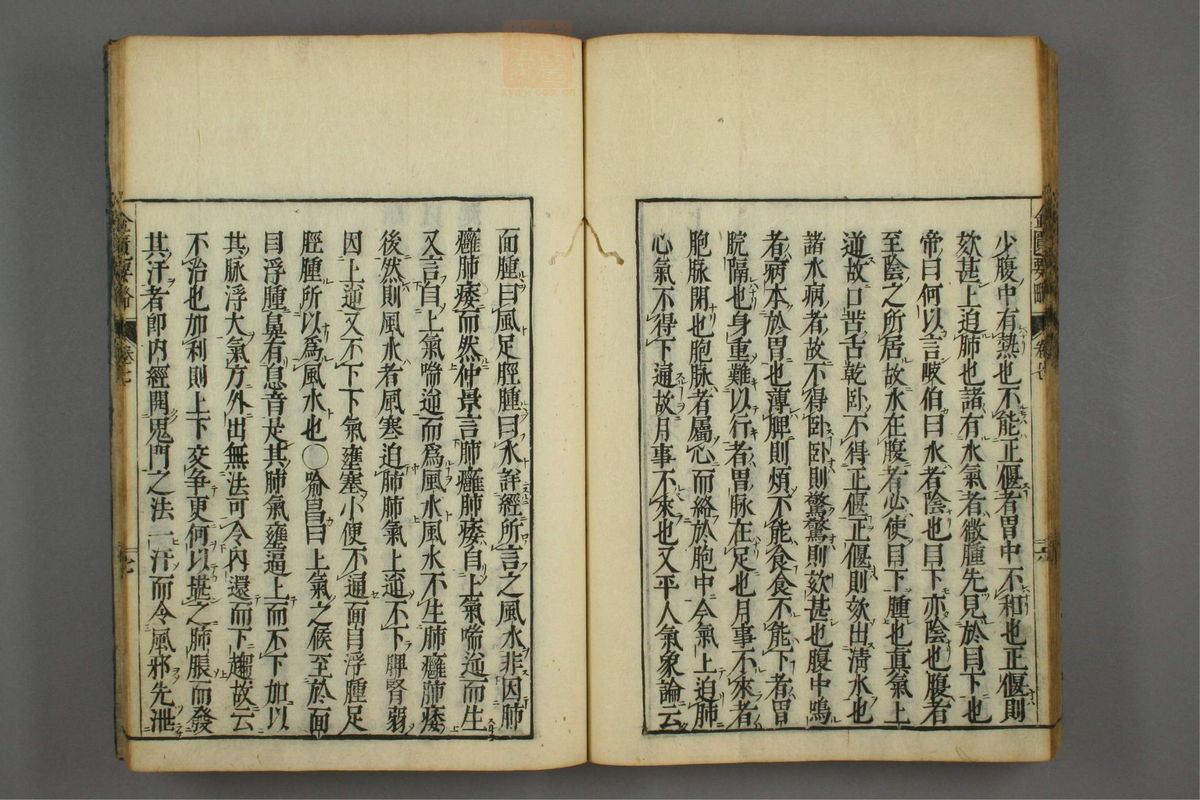 少腹中有熱也不能正偃者胃中不和也正偃則
欬甚上迫肺也諸有水氣者微腫先見於目下也
帝曰何以言岐伯曰水者陰也目下亦陰也腹者
至陰之所居故水在腹者必使目下腫也眞氣上
逆故口苦舌乾卧不得正偃正偃則欬出清水也
諸水病者故不得卧卧則驚驚則欬甚也腹中鳴
者病本於胃也薄脾則煩不能食食不能下者胃
脘隔也身重難以行者胃脉在足也月事不來者
胞脉閉也胞脉者屬心而絡於胞中今氣上迫肺
心氣不得下通故月事不來也又平人氣象論云
面腫曰風足脛腫曰水詳經所言之風水非因肺
癰肺痿而然仲景言肺癰肺痿自上氣喘逆而生
又言自上氣喘逆而爲風水風水不生肺癰肺痿
後然則風水者風寒迫肺肺氣上逆不下脾腎弱
因上逆又不下下氣壅塞小便不通面目浮腫足
脛腫所以爲風水也○喻昌曰上氣之候至於面
目浮腫鼻有息音是其肺氣壅逼上而不下加以
其脉浮大氣方外出無法可令内還而下趨故云
不治也加利則上下交爭更何以堪之肺脹而發
其汗者即内經開鬼門之法一汗而令風邪先泄
金匱要略
卷七